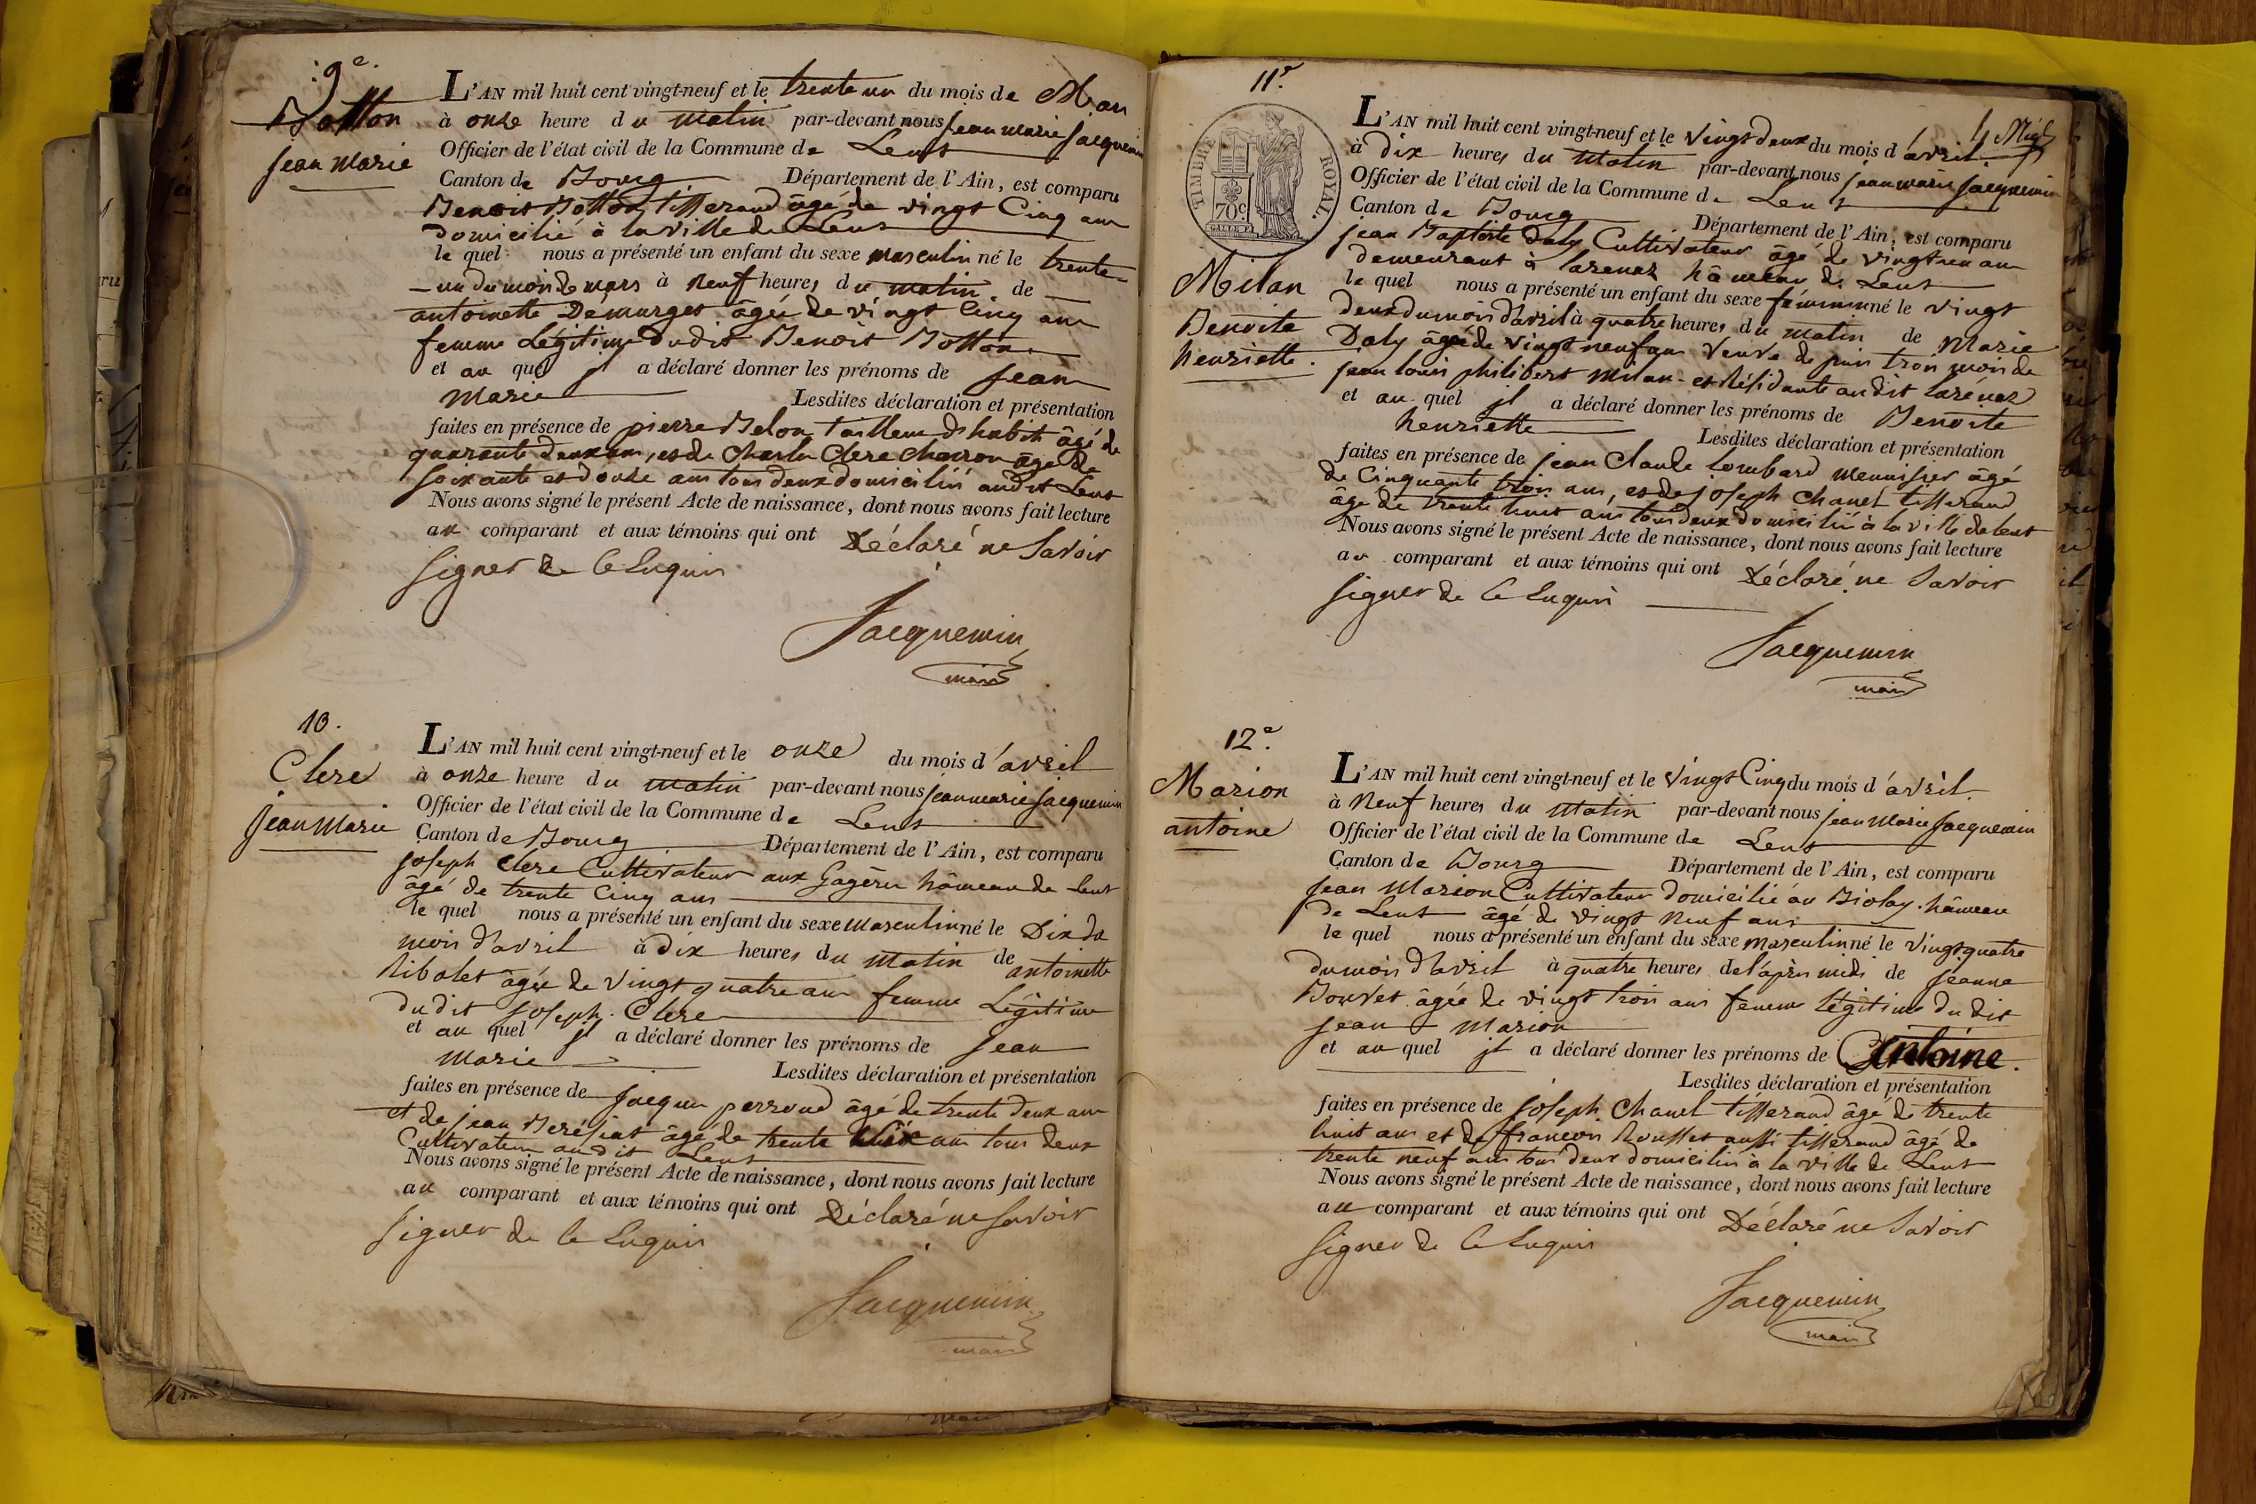 9e.
Botton
jean marie
L'AN mil huit cent vingt-neuf et le trente un du mois de Mars
à onze heure du matin par-devant nous jean marie jacquemin
Officier de l'état civil de la Commune de Lent
Canton de Bourg Département de l'Ain, est comparu
Benoit Botton tisserand âgé de vingt Cinq ans
domicilié à la ville de Lent
le quel nous a présenté un enfant du sexe masculin né le trente
un du mois de mars à neuf heures du matin de
antoinette Demurger âgée de vingt Cinq ans
femme Légitime dudit Benoit Botton
et au quel il a déclaré donner les prénoms de jean
marie Lesdites déclaration et présentation
faites en présence de pierre Belon tailleur d'habits âgé de
quarante deux ans, et de Charles Clere charron âgé de
soixante et douze ans tous deux domiciliés audit Lent
Nous avons signé le présent Acte de naissance, dont nous avons fait lecture
au comparant et aux témoins qui ont Déclaré ne Savoir
signer de Ce Enquis
Jacquemin
maire
10.
Clere
jean Marie
L'AN mil huit cent vingt-neuf et le onze du mois d'avril
à onze heure du matin par-devant nous jean marie jacquemin
Officier de l'état civil de la Commune de Lent
Canton de Bourg Département de l'Ain, est comparu
joseph Clere Cultivateur aux hâmeau de Lent
âgé de trente Cinq ans
le quel nous a présenté un enfant du sexe masculin né le Dix du
mois d'avril à dix heures du matin de antoinette
Ribolet âgée de vingt quatre ans femme Légitime
du dit joseph Clere
et au quel il a déclaré donner les prénoms de jean
marie Lesdites déclaration et présentation
faites en présence de jacques perroud âgé de trente deux ans
et de jean Beréjiat âgé de trente ans tous deux
Cultivateurs audit Lent
Nous avons signé le présent Acte de naissance, dont nous avons fait lecture
au comparant et aux témoins qui ont Déclaré ne Savoir
signer de Ce Enquis
Jacquemin
maire
11e.
TIMBRE ROYAL.
70c.
Milan
Benoite
henriette.
L'AN mil huit cent vingt-neuf et le vingt deux du mois d'avril
à dix heures du matin par-devant nous jean marie jacquemin
Officier de l'état civil de la Commune de Lent
Canton de Bourg Département de l'Ain, est comparu
jean Baptiste Daly Cultivateur âgé de vingt un ans
demeurant à larenas hâmeau de Lent
le quel nous a présenté un enfant du sexe féminin né le vingt
deux du mois d'avril à quatre heures du matin de Marie
Daly âgée de vingt neuf ans veuve de puis trois mois de
jean louis philibert milan et Résidante audit larénas
et au quel il a déclaré donner les prénoms de Benoite
henriette Lesdites déclaration et présentation
faites en présence de jean Claude lombard menuisier âgé
de Cinquante trois ans, et de joseph Chanel tisserand
âgé de trente huit ans tous deux domiciliés à la ville de Lent
Nous avons signé le présent Acte de naissance, dont nous avons fait lecture
au comparant et aux témoins qui ont Déclaré ne Savoir
signer de Ce Enquis
Jacquemin
maire
12e.
Marion
antoine
L'AN mil huit cent vingt-neuf et le vingt Cinq du mois d'avril.
à Neuf heures du matin par-devant nous jean marie jacquemin
Officier de l'état civil de la Commune de Lent
Canton de Bourg Département de l'Ain, est comparu
jean Marion Cultivateur domicilié au Biolay hâmeau
de Lent âgé de vingt neuf ans
le quel nous a présenté un enfant du sexe masculin né le vingt quatre
du mois d'avril à quatre heures de l'après midi de jeanne
Bouvet âgée de vingt trois ans femme légitime du dit
jean Marion
et au quel il a déclaré donner les prénoms de Antoine.
Lesdites déclaration et présentation
faites en présence de joseph Chanel tisserand âgé de trente
huit ans et de françois Rousset aussi tisserand âgé de
trente neuf ans tous deux domiciliés à la ville de Lent
Nous avons signé le présent Acte de naissance, dont nous avons fait lecture
au comparant et aux témoins qui ont Déclaré ne Savoir
signer de Ce Enquis
Jacquemin
maire